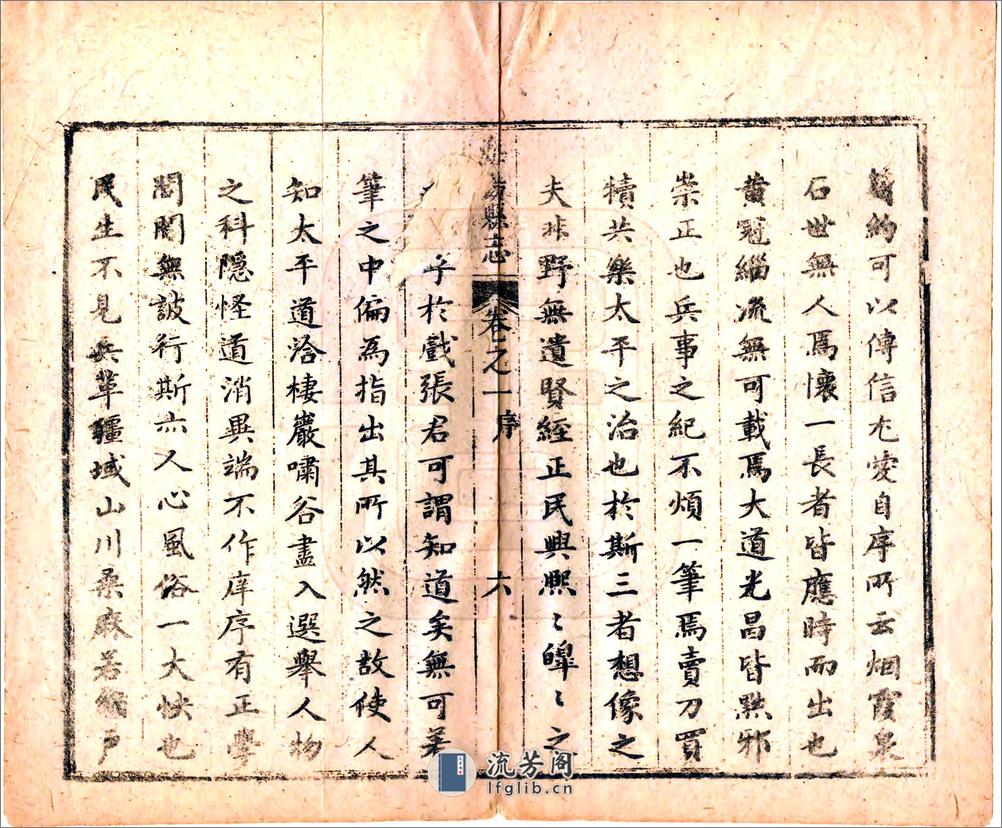 約可以傳信尤愛自序所云烟霞泉
石世無人焉懷一長者皆應時而出也
黄冠緇流無可載焉大道光昌皆黜邪
崇正也兵事之紀不煩一筆焉賣刀買
犢共樂太平之治也於斯三者想像之
夫非野無遺賢經正民興熙〻皥〻之
縣志 卷之一 序 六
乎於戲張君可謂知道矣無可著
筆之中偏為指出其所以然之故使人
知太平道洽棲巖嘯谷盡入選舉人物
之科隱怪道消異端不作庠序有正學
閭閻無詖行斯亦人心風俗一大快也
民生不見兵革疆域山川桑麻若戶
流芳阁
lfglib.cn